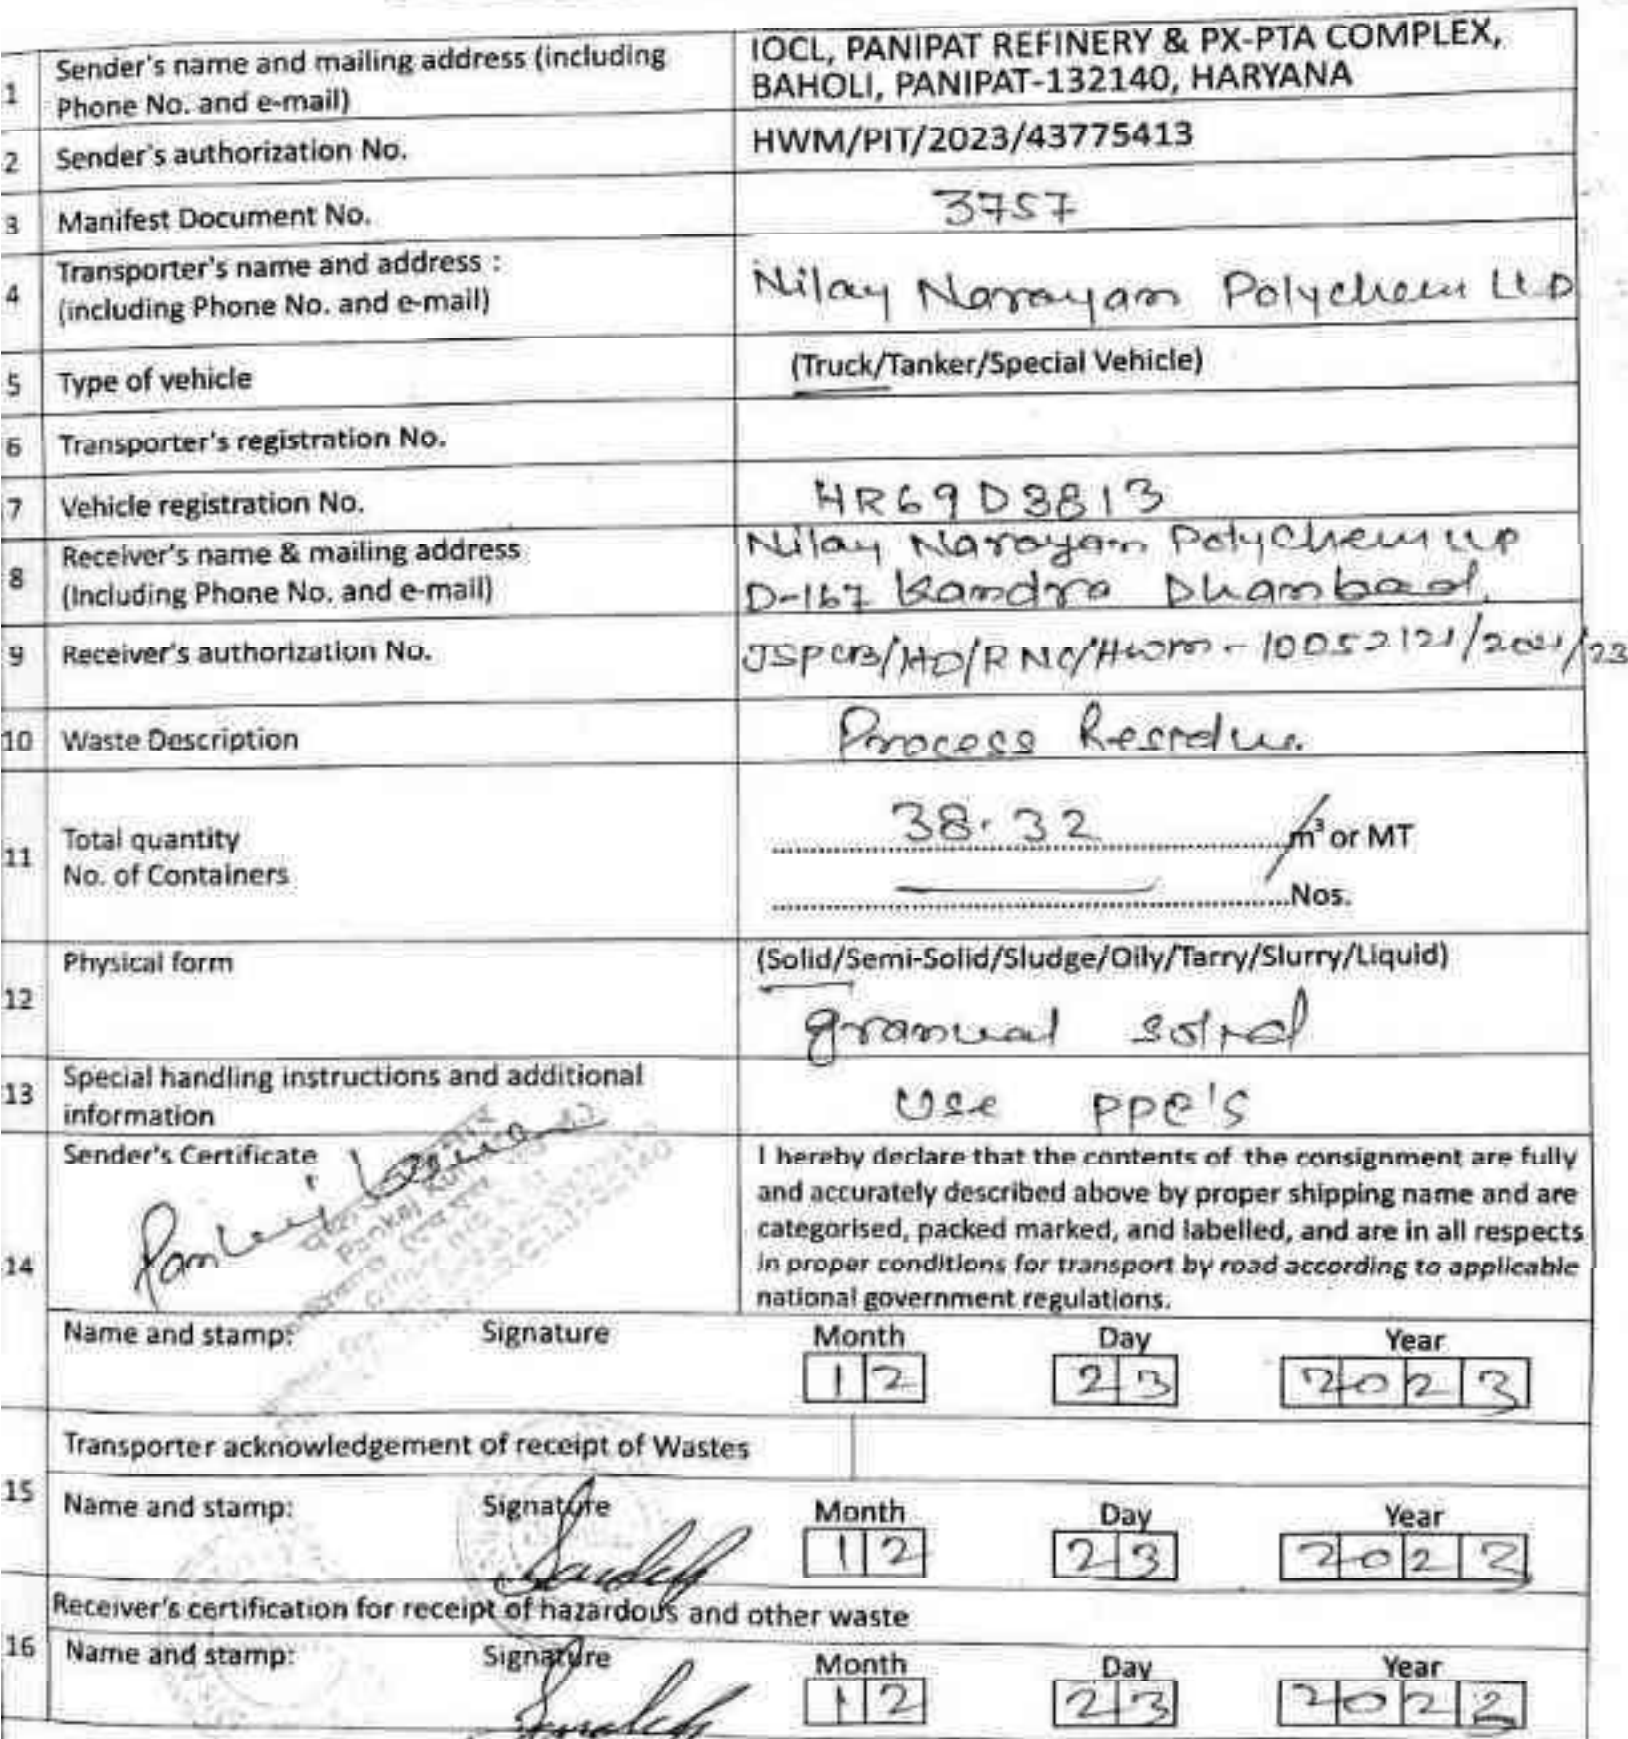 1 Sender's name and mailing address (including Phone No. and e-mail) IOCL, PANIPAT REFINERY & PX-PTA COMPLEX, BAHOLI, PANIPAT-132140, HARYANA
2 Sender's authorization No. HWM/PIT/2023/43775413
3 Manifest Document No. 3757
4 Transporter's name and address : (including Phone No. and e-mail) Nilay Narayan Polychem
5 Type of vehicle (Truck/Tanker/Special Vehicle)
6 Transporter's registration No.
7 Vehicle registration No. HR69D3813
8 Receiver's name & mailing address (Including Phone No. and e-mail) Nilay Narayan Polychem LLP D-167 Kandra Dhanbad
9 Receiver's authorization No. JSPCB/HO/RNC/HWM-10052121/2021/23
10 Waste Description Process Residue
11 Total quantity 38.32 m³ or MT
No. of Containers Nos.
12 Physical form (Solid/Semi-Solid/Sludge/Oily/Tarry/Slurry/Liquid)
granual solid
13 Special handling instructions and additional information Use PPE's
14 Sender's Certificate
Pankaj Kumar
I hereby declare that the contents of the consignment are fully
and accurately described above by proper shipping name and are
categorised, packed marked, and labelled, and are in all respects
in proper conditions for transport by road according to applicable
national government regulations.
Name and stamp: Signature Month Day Year
12 23 2023
15 Transporter acknowledgement of receipt of Wastes
Name and stamp: Signature Month Day Year
12 23 2023
16 Receiver's certification for receipt of hazardous and other waste
Name and stamp: Signature Month Day Year
12 23 2023